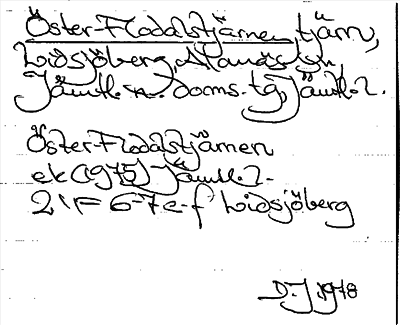 Öster-Flodalstjärnen, tjärn,
Lidsjöberg, Alanäs sn,
Jämtl. n. doms. tg, Jämtl. l.
Öster-Flodalstjärnen
ek (1975) Jämtl. l.
21F 6-7e-f Lidsjöberg
D.J 1978